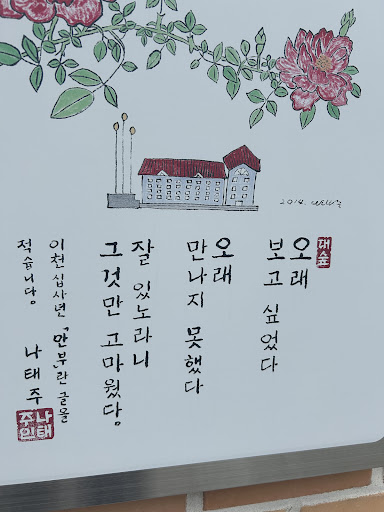 2014. 나태주
대숲
오래
보고 싶었다
오래
만나지 못했다
잘 있노라니
그것만 고마웠당
이천십사년 「안부」란 글을
적습니당
나태주
나태주인